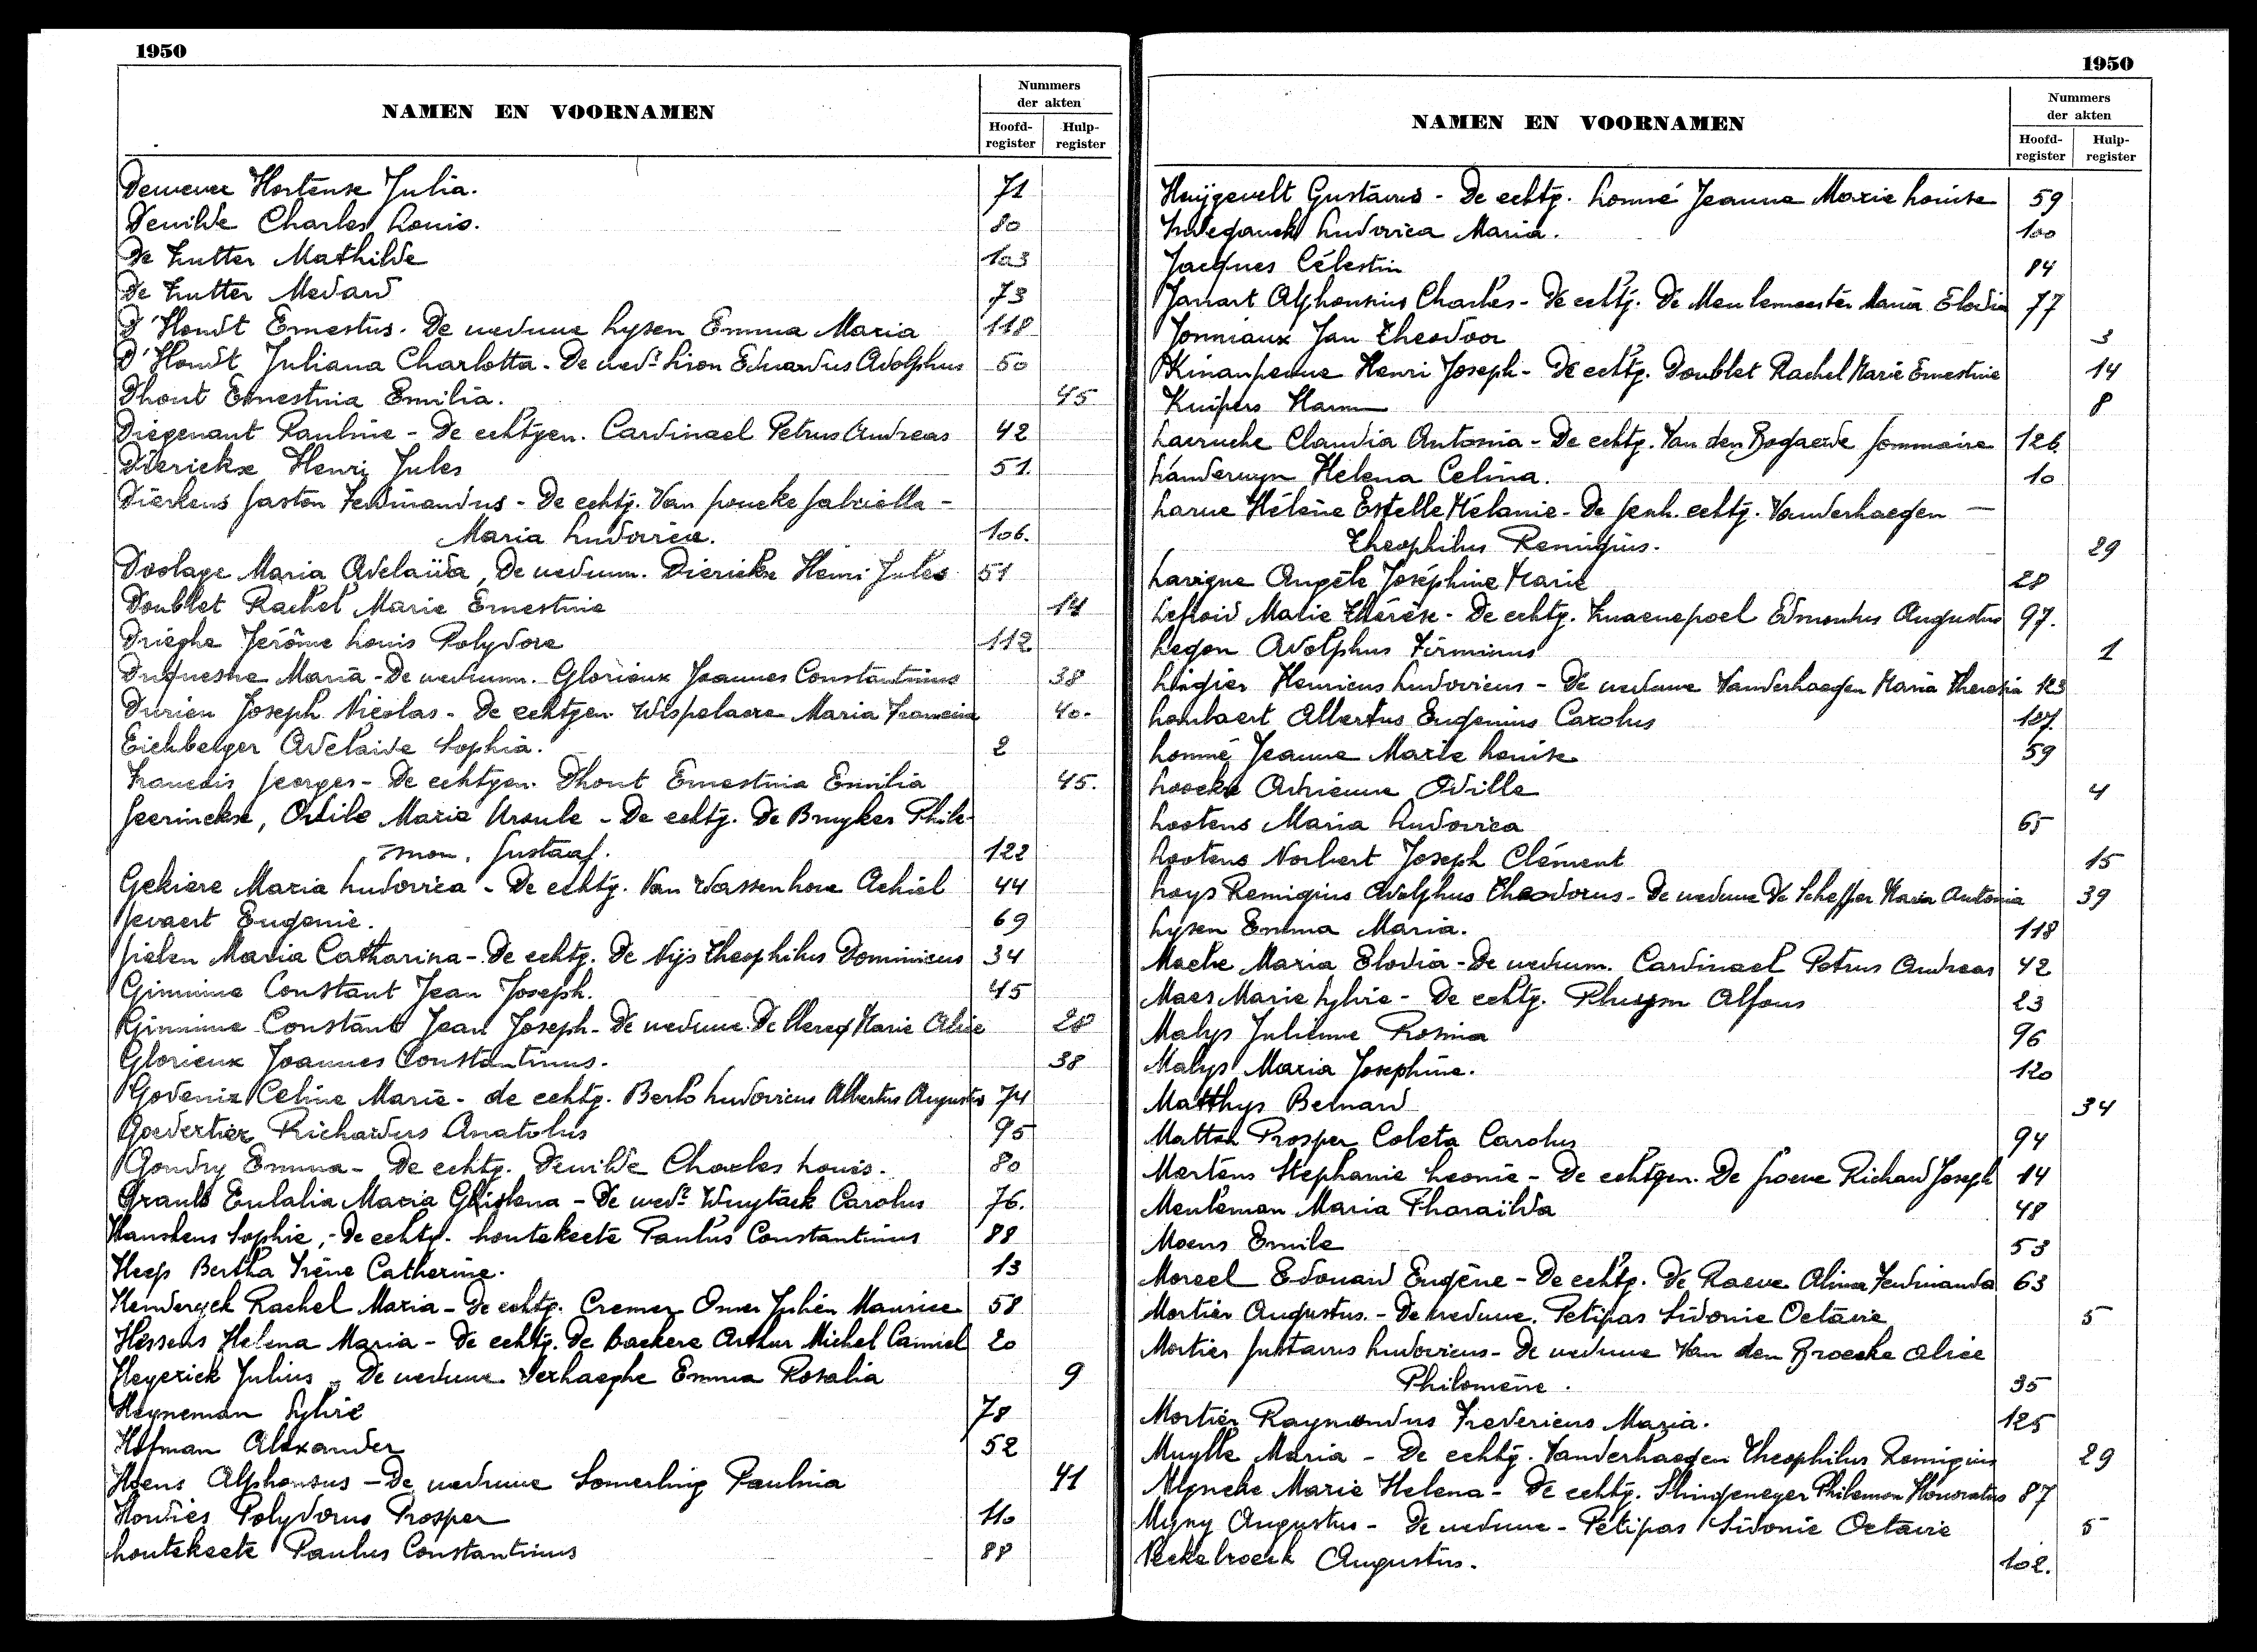 1950
NAMEN EN VOORNAMEN
Nummers
der akten
Hoofd-
register
Hulp-
register
Dewever Hortense Julia. 71
Dewilde Charles Louis. 80
De Zutter Mathilde 103
De Zutter Medard 73
D'Hondt Ernestus. De weduwe Lysen Emma Maria 118
D'Hondt Juliana Charlotta - De wedr Lion Eduardus Adolphus 50
Dhont Ernestina Emilia. 45
Diegenant Pauline - De echtgen. Cardinael Petrus Andreas 42
Dierickx Henri Jules 51.
Dierkens Gaston Ferdinandus - De echtg. Van Poucke Gabriella -
Maria Ludovica. 106.
Doolage Maria Adelaïda, De weduw. Dierickx Henri Jules 51
Doublet Rachel Marie Ernestine 14
Drieghe Jerôme Louis Polydore 112
Duquesne Maria - De weduwn. Glorieux Joannes Constantinus 38
Durieu Joseph Nicolas - De echtgen. Wispelaere Maria Francisca 40.
Eichberger Adelaide Sophia. 2
Francois Georges - De echtgen. Dhont Ernestina Emilia 45.
Geerinckx, Odile Marie Ursule - De echtg. De Bruyker Phile-
mon. Gustaaf. 122
Gekiere Maria Ludovica - De echtg. Van Wassenhove Achiel 44
Gevaert Eugenie. 69
Gielen Maria Catharina - De echtg. De Nijs Theophilus Dominicus 34
Gimmine Constant Jean Joseph. 45
Gimmine Constant Jean Joseph - De weduwe De Clercq Marie Alice 28
Glorieux Joannes Constantinus. 38
Godeniz Celine Marie - de echtg. Berlo Ludovicus Albertus Augustus 74
Goevertier Richardus Anatolus 95
Goudry Emma - De echtg. Dewilde Charles Louis. 80
Grauls Eulalia Maria Ghislena - De wedr Wuytack Carolus 76.
Hanskens Sophie, - De echtg. Houtekeete Paulus Constantinus 88
Heep Bertha Irène Catherine. 13
Henderyck Rachel Maria - De echtg. Cremer Omer Julien Maurice 58
Hessens Helena Maria - De echtg. De Backere Arthur Michel Camiel 20
Heyerick Julius - De weduwe Verhaeghe Emma Rosalia 9
Heyneman Sylvie 78
Hofman Alexander 52
Hoens Alphonsus - De weduwe Somerling Paulina 41
Hondies Polydorus Prosper 110
Houtekeete Paulus Constantinus 88
1950
NAMEN EN VOORNAMEN
Nummers
der akten
Hoofd-
register
Hulp-
register
Huijgevelt Gustavus - De echtg. Lommé Jeanne Marie Louise 59
Indeganck Ludovica Maria. 100
Jacques Célestin 84
Janart Alphonsius Charles - De echtg. De Meulemeester Maria Elodia 77
Jonniaux Jan Theodoor 3
Kinanpenne Henri Joseph - De echtg. Doublet Rachel Marie Ernestine 14
Kuipers Harm 8
Lacruche Claudia Antonia - De echtg. Van den Bogaerde Gommaire 126.
Landerwyn Helena Celina. 10
Larue Hélène Estelle Mélanie - De Gesch. echtg. Vanderhaegen -
Theophilus Remigius. 29
Lavigne Angèle Joséphine Marie 28
Lefroid Marie Thérèse - De echtg. Zwaenepoel Edmondus Augustus 97.
Legon Adolphus Firminus 1
Lingier Henricus Ludovicus - De weduwe Vanderhaegen Maria Theresia 123
Lombaert Albertus Eugenius Carolus 107.
Lommé Jeanne Marie Louise 59
Loockx Adrienne Odille 4
Lootens Maria Ludovica 65
Lootens Norbert Joseph Clément 15
Loys Remigius Adolphus Theodorus - De weduwe De Scheppper Maria Antonia 39
Lysen Emma Maria. 118
Mache Maria Elodia - De weduwn. Cardinael Petrus Andreas 42
Maes Marie Sylvie - De echtg. Pluym Alfons 23
Malys Julienne Rosina 96
Malys Maria Josephine. 120
Matthys Bernard 34
Matton Prosper Coleta Carolus 94
Mertens Stephanie Leonie - De echtgen. De Groeve Richard Joseph 14
Meuleman Maria Pharaïlda 48
Moens Emile 53
Moreel Edouard Eugène - De echtg. De Raeve Alina Ferdinanda 63
Mortier Augustus. - De weduwe. Petipas Sidonie Octavie 5
Mortier Gustavus Ludovicus - De weduwe Van den Broecke Alice
Philomène. 35
Mortier Raymondus Fredericus Maria. 125
Muylle Maria - De echtg. Vanderhaegen Theophilus Remigius 29
Myncke Marie Helena - De echtg. Slingeneyer Philemon Honoratus 87
Myny Augustus - De weduwe - Petipas Sidonie Octavie 5
Neckebroeck Augustus. 102.